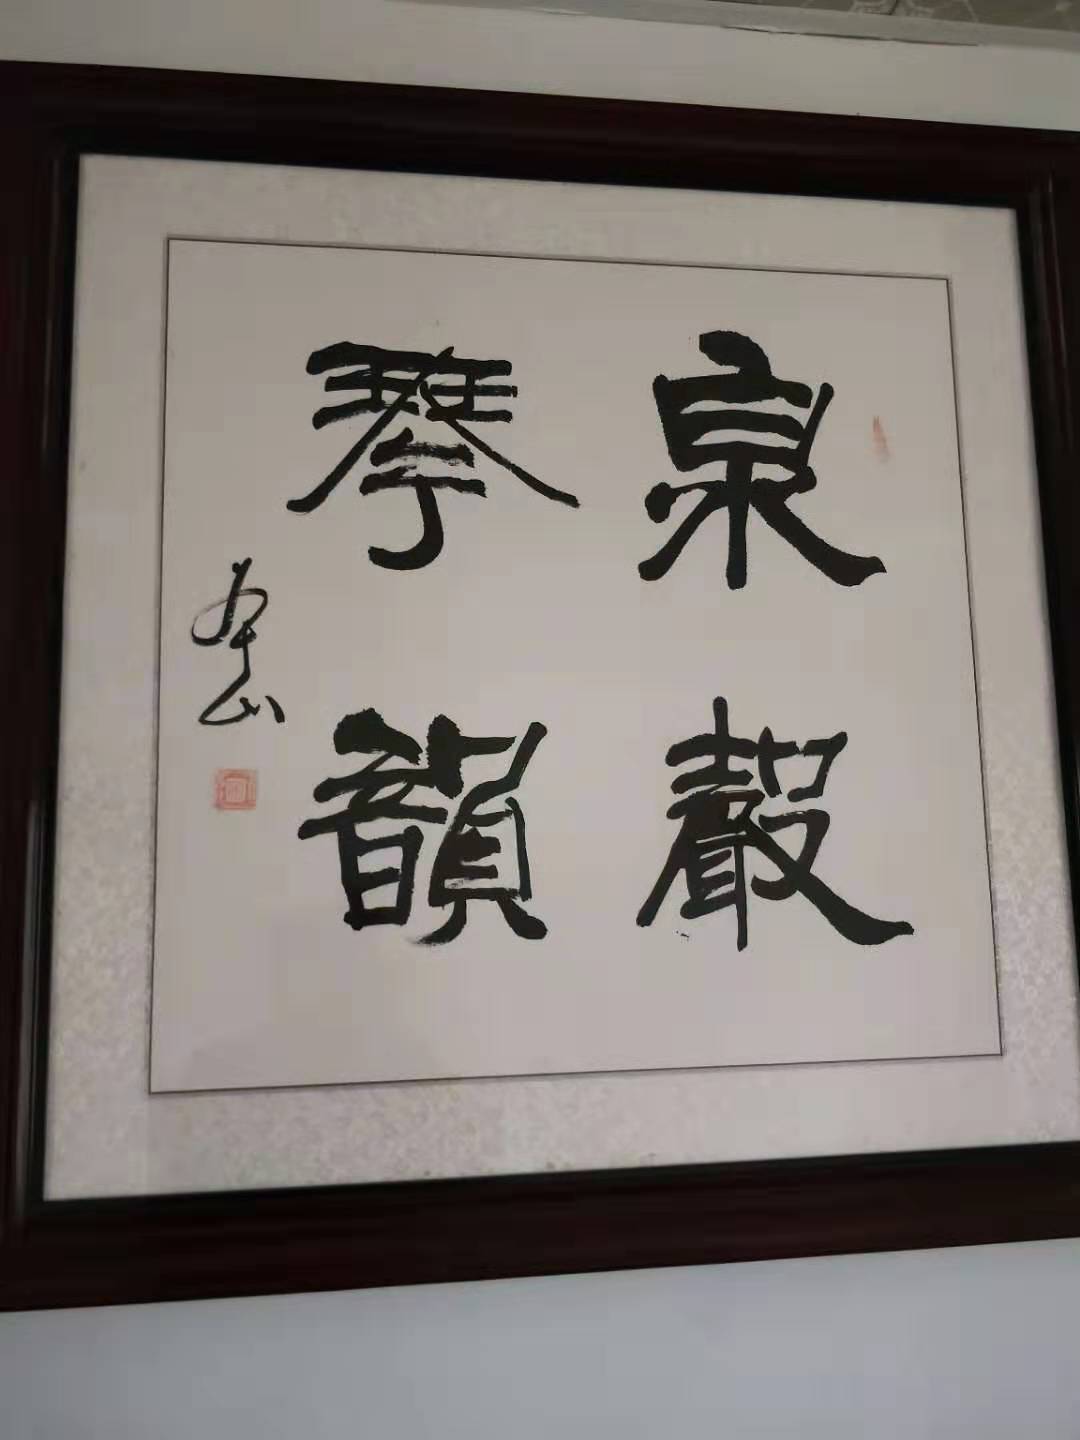 泉聲
琴韻